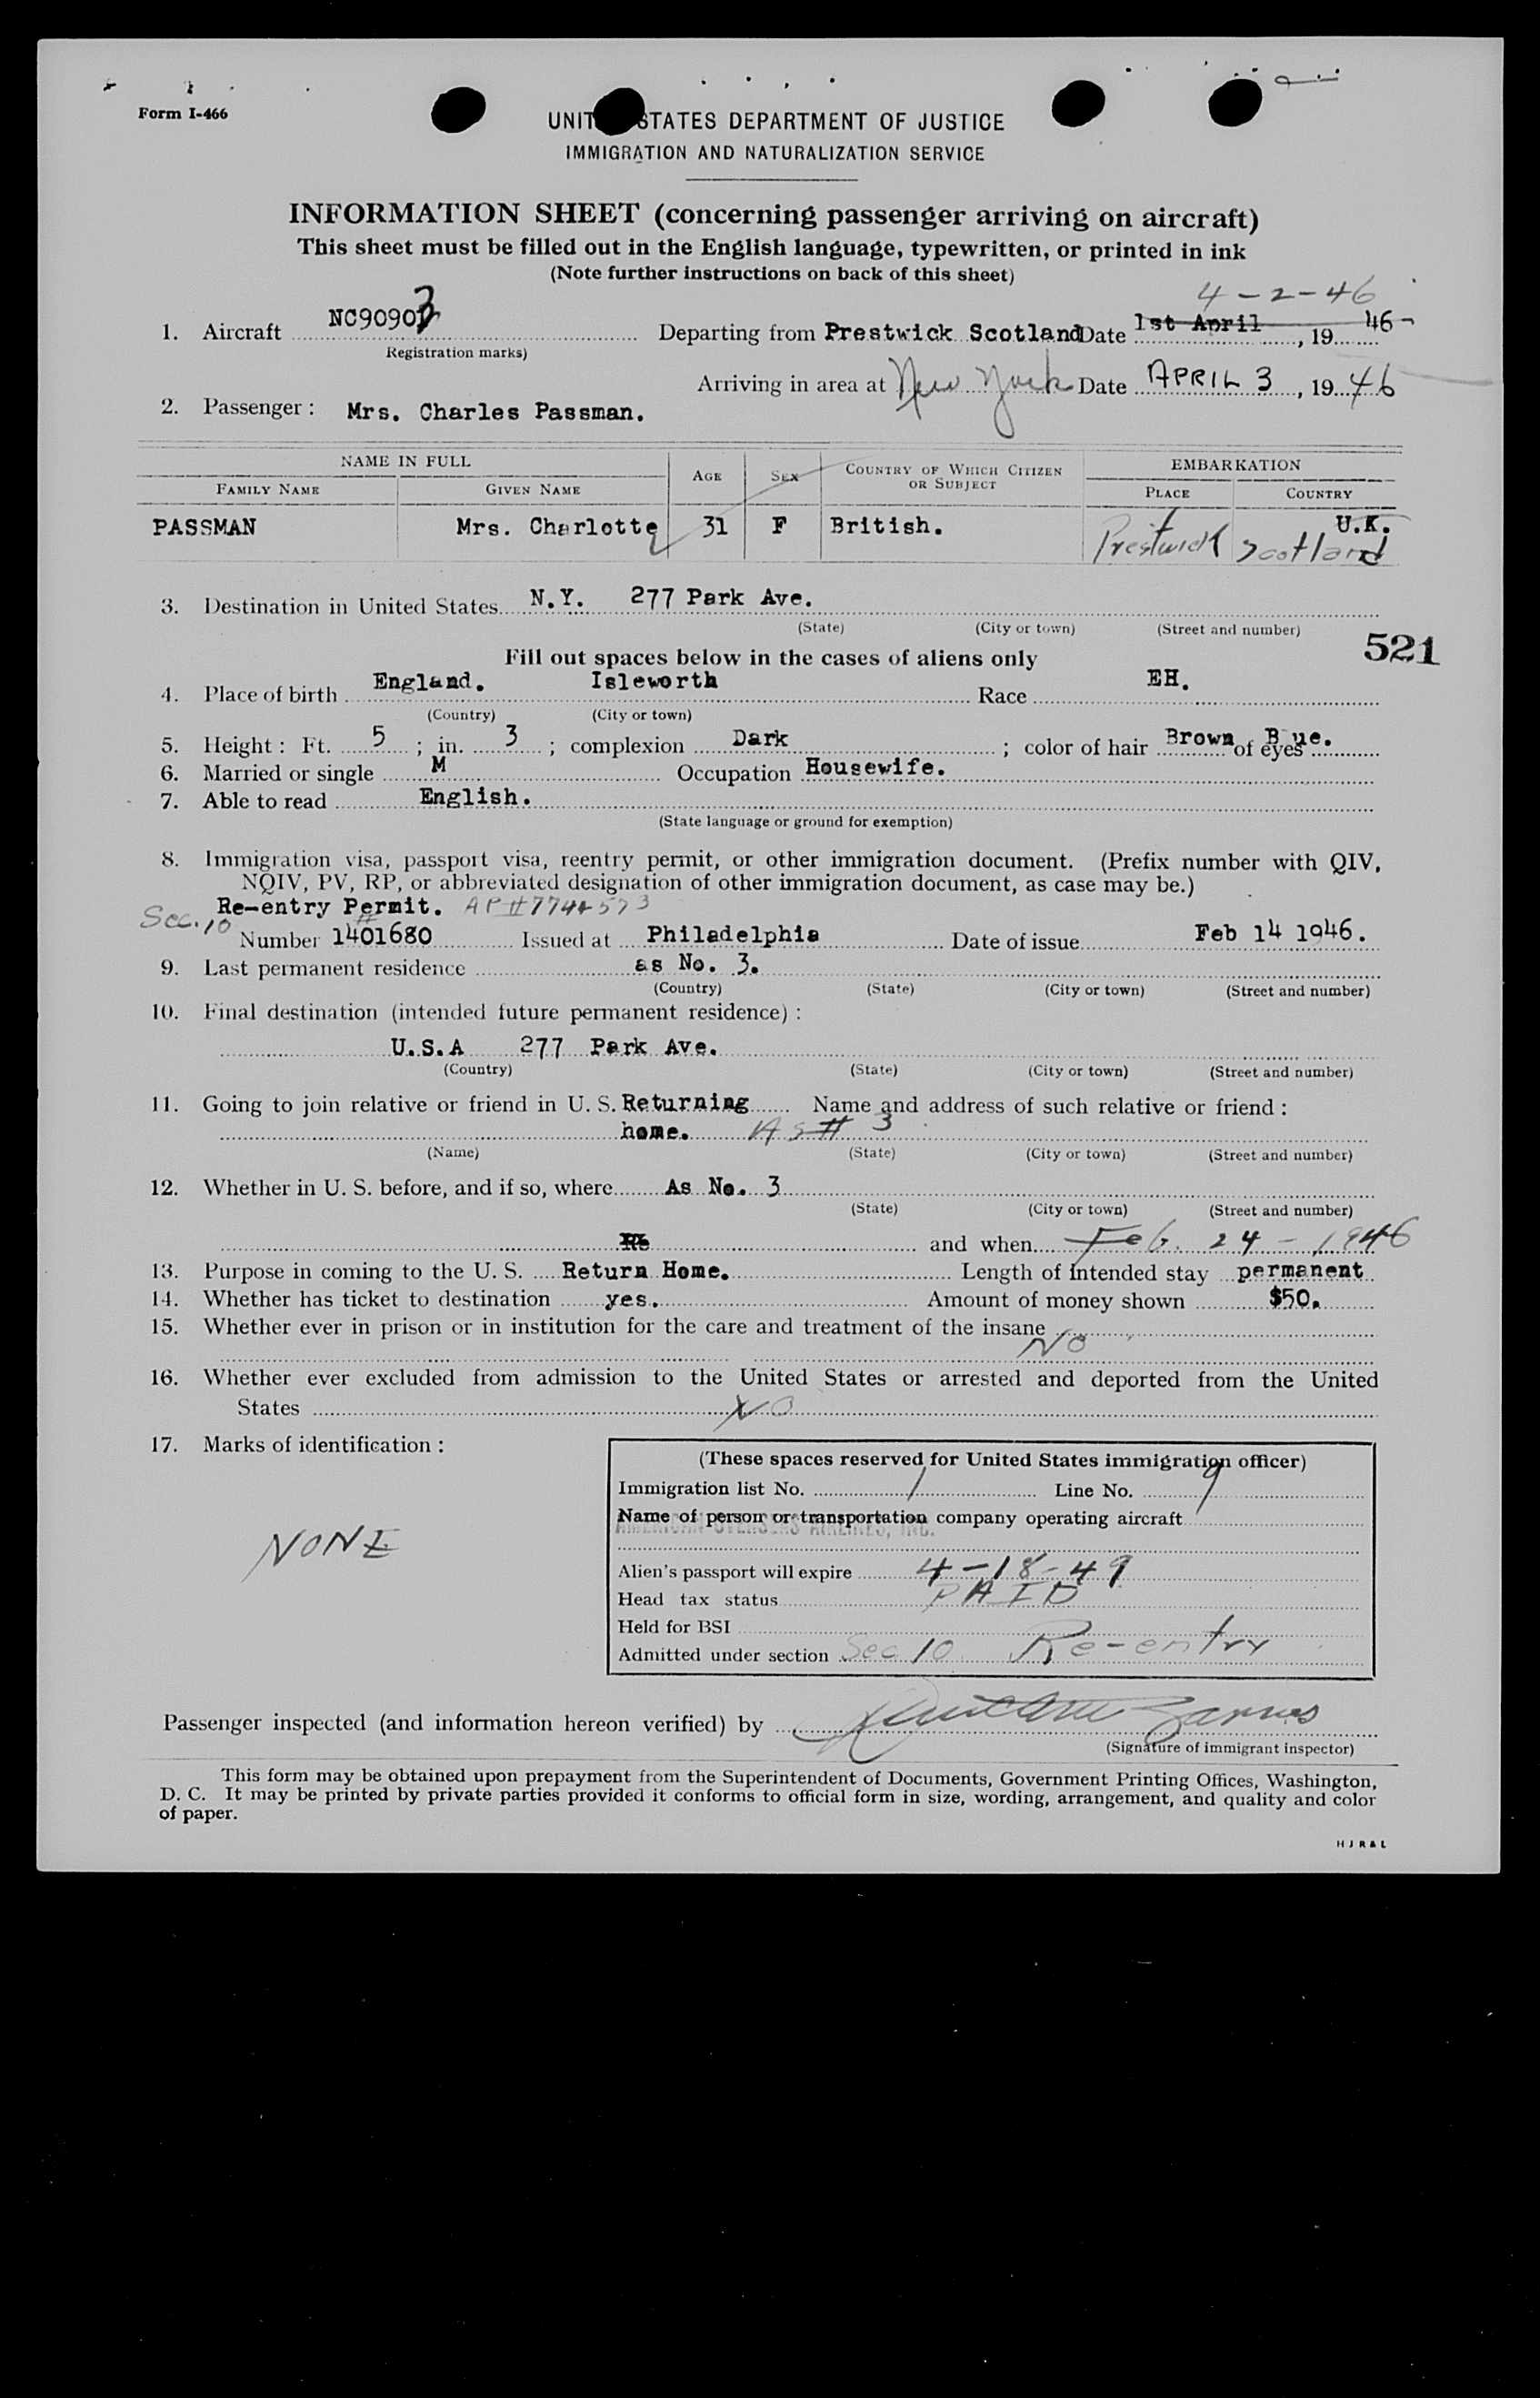 Form I-466
UNITED STATES DEPARTMENT OF JUSTICE
IMMIGRATION AND NATURALIZATION SERVICE
INFORMATION SHEET (concerning passenger arriving on aircraft)
This sheet must be filled out in the English language, typewritten, or printed in ink
(Note further instructions on back of this sheet)
4-2-46
1. Aircraft NC90903 Departing from Prestwick Scotland Date 1st April, 19 46
(Registration marks)
Arriving in area at New York Date APRIL 3, 19 46
2. Passenger: Mrs. Charles Passman.
NAME IN FULL AGE SEX COUNTRY OF WHICH CITIZEN OR SUBJECT EMBARKATION
FAMILY NAME GIVEN NAME PLACE COUNTRY
PASSMAN Mrs. Charlotte 31 F British. U.K.
Prestwick Scotland
3. Destination in United States N.Y. 277 Park Ave.
(State) (City or town) (Street and number)
521
Fill out spaces below in the cases of aliens only
4. Place of birth England. Isleworth Race EH.
(Country) (City or town)
5. Height: Ft. 5; in. 3; complexion Dark; color of hair Brown of eyes B ue.
6. Married or single M Occupation Housewife.
7. Able to read English.
(State language or ground for exemption)
8. Immigration visa, passport visa, reentry permit, or other immigration document. (Prefix number with QIV,
NQIV, PV, RP, or abbreviated designation of other immigration document, as case may be.)
Sec. 10 Re-entry Permit. AP#
Number 1401680 Issued at Philadelphia Date of issue Feb 14 1946.
9. Last permanent residence as No. 3.
(Country) (State) (City or town) (Street and number)
10. Final destination (intended future permanent residence):
U.S.A 277 Park Ave.
(Country) (State) (City or town) (Street and number)
11. Going to join relative or friend in U. S. Returning Name and address of such relative or friend:
home. AS # 3
(Name) (State) (City or town) (Street and number)
12. Whether in U. S. before, and if so, where As No. 3
(State) (City or town) (Street and number)
and when Feb. 24 - 1946
13. Purpose in coming to the U. S. Return Home. Length of intended stay permanent
14. Whether has ticket to destination yes. Amount of money shown $50.
15. Whether ever in prison or in institution for the care and treatment of the insane
NO
16. Whether ever excluded from admission to the United States or arrested and deported from the United
States NO
17. Marks of identification:
NONE
(These spaces reserved for United States immigration officer)
Immigration list No. 1 Line No. 9
Name of person or transportation company operating aircraft
AMERICAN OVERSEAS AIRLINES, INC.
Alien's passport will expire 4-18-49
Head tax status PAID
Held for BSI
Admitted under section Sec 10 Re-entry
Passenger inspected (and information hereon verified) by
(Signature of immigrant inspector)
This form may be obtained upon prepayment from the Superintendent of Documents, Government Printing Offices, Washington,
D. C. It may be printed by private parties provided it conforms to official form in size, wording, arrangement, and quality and color
of paper.
H J R & L